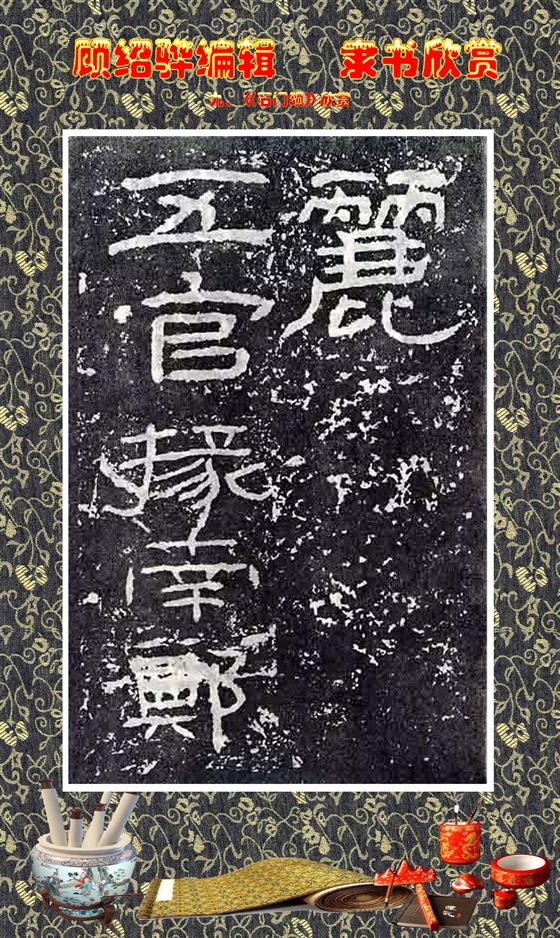 顾绍骅编辑 隶书欣赏
九、《石门颂》欣赏
麗
五官掾南鄭